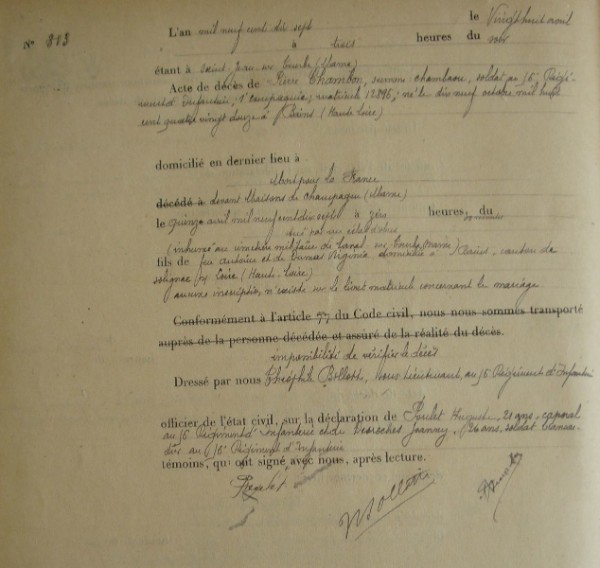 N° 813
L'an mil neuf cent dix sept le Vingt huit avril
à trois heures du soir
étant à Saint Jean sur Tourbe (Marne)
Acte de décès de René Chambon, soldat au 16e Régi-
ment d'Infanterie, compagnie, matricule né le dix neuf octobre mil huit
cent quatre vingt douze à Bains (Haute Loire)
domicilié en dernier lieu à
Mort pour la France
décédé à devant Maisons de Champagne (Marne)
le quinze avril mil neuf cent dix sept à zéro heures, du
tué par un éclat d'obus
(inhumé au cimetière militaire de Laval sur Tourbe, Marne)
fils de feu Antoine et de Virginie domiciliés à Bains, canton de
solignac sur Loire (Haute-Loire)
aucune inscription n'existe sur le livret matricule concernant le mariage
Conformément à l'article 77 du Code civil, nous nous sommes transporté
auprès de la personne décédée et assuré de la réalité du décès.
impossibilité de vérifier le décès
Dressé par nous Théophile Bollotte, sous Lieutenant, au 16e Régiment d'Infanterie
officier de l'état civil, sur la déclaration de 21 ans, caporal
au 16e Régiment d'Infanterie et de Desroches Jeanny, 26 ans, soldat
au 16e Régiment d'Infanterie
témoins, qui ont signé avec nous, après lecture.